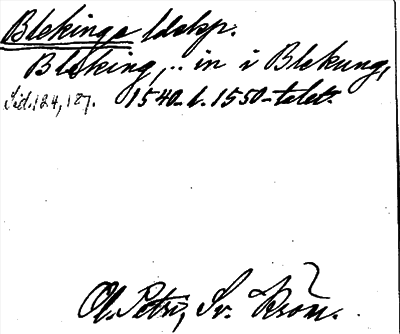 Blekinge ldskp.
Bleking, .. in i Blekung,
Sid. 124, 187. 1540- l. 1550-talet.
Ol. Petri, Sv. Krön.